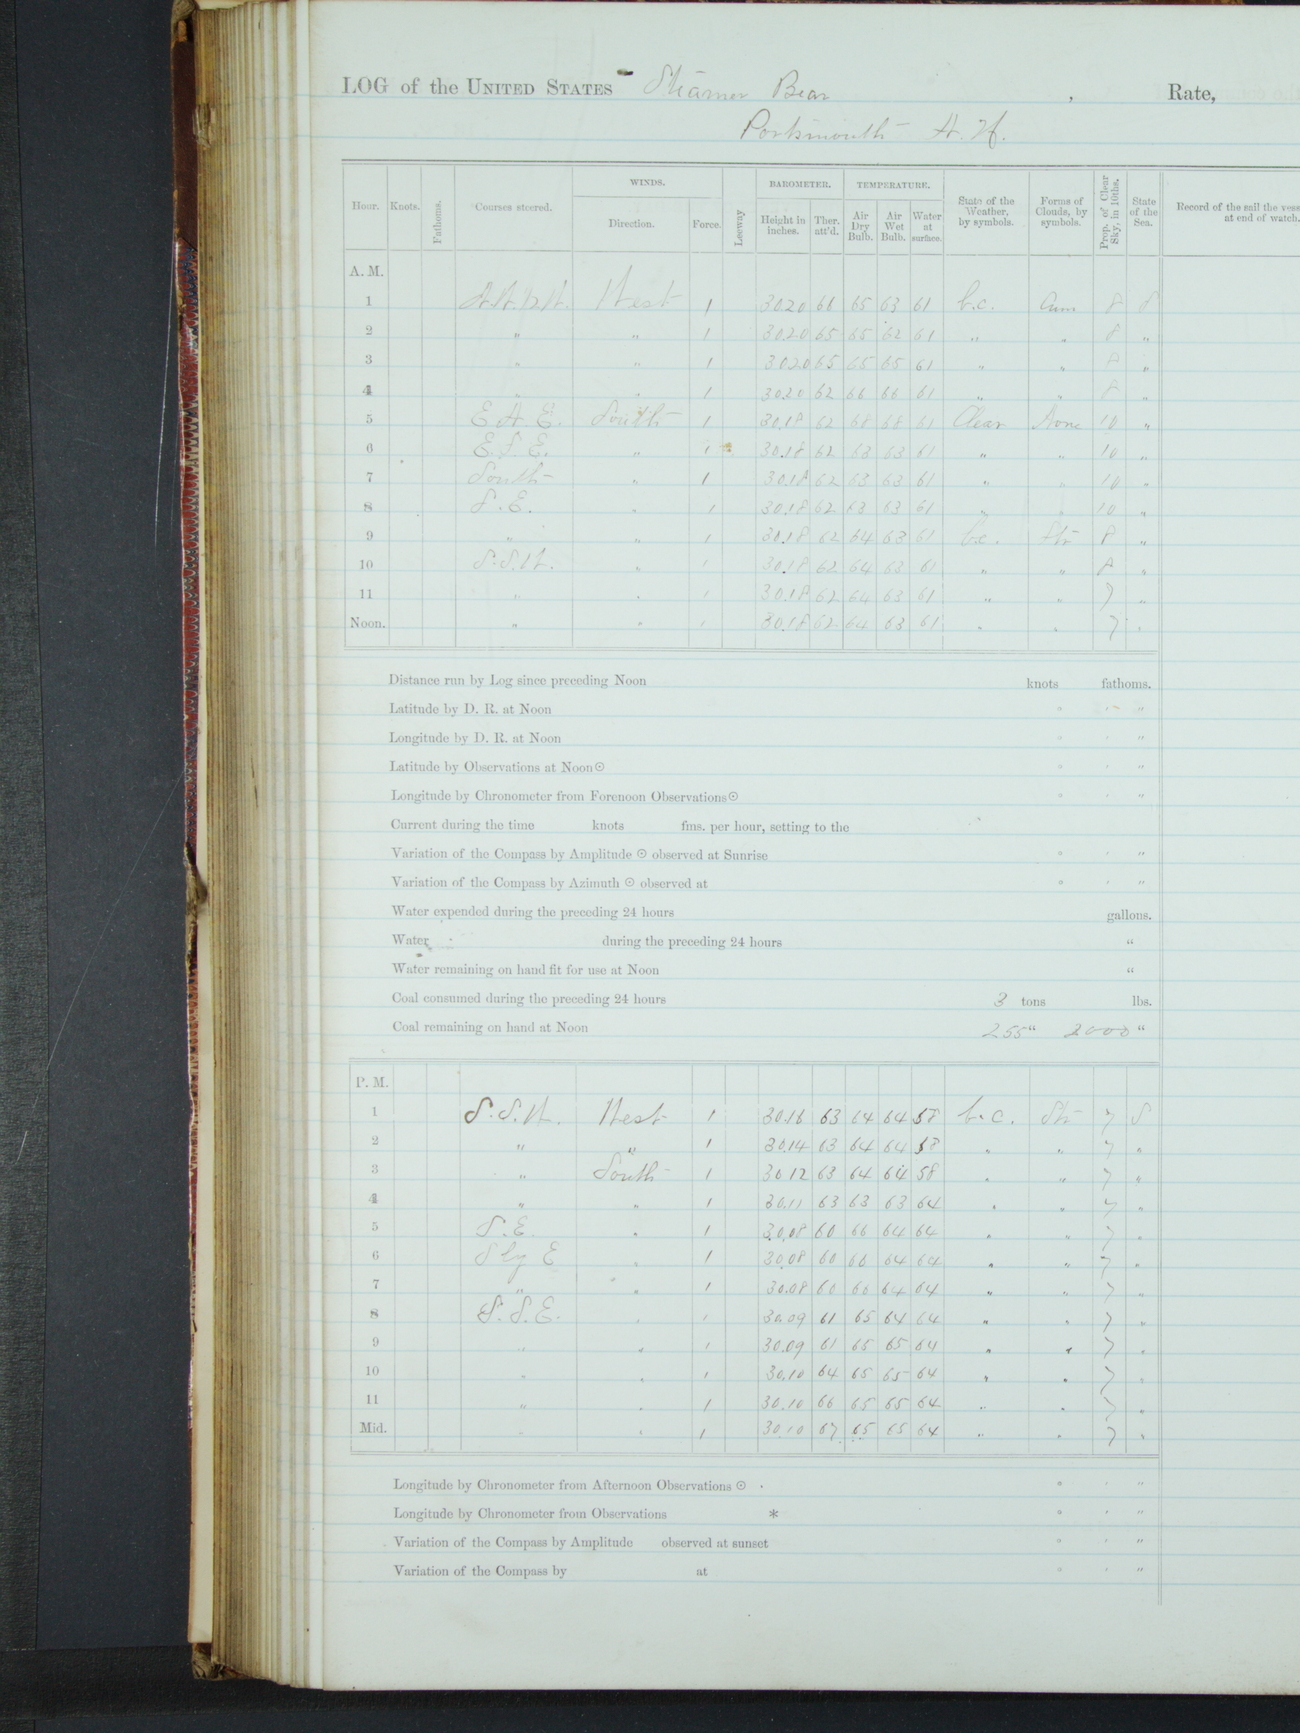 LOG of the UNITED STATES Steamer Bear , Rate,
Portsmouth N.H.
Hour. Knots. Fathoms. Courses steered. WINDS. Direction. Force. Leeway BAROMETER. Height in inches. Ther. att'd. TEMPERATURE. Air Dry Bulb. Air Wet Bulb. Water at surface. State of the Weather, by symbols. Forms of Clouds, by symbols. Prop. of Clear Sky, in 10ths. State of the Sea. Record of the sail the at end of watch.
A. M.
1 West 1 30.20 66 65 63 61 b.c. Cum 8 S
2 " " 1 30.20 65 65 62 61 " " 8 "
3 " " 1 30.20 65 65 65 61 " " 8 "
4 " " 1 30.20 62 66 66 61 " " 8 "
5 E.N.E. South 1 30.18 62 68 68 61 Clear None 10 "
6 E.S.E. " 1 30.18 62 63 63 61 " " 10 "
7 South " 1 30.18 62 63 63 61 " " 10 "
8 S.E. " 1 30.18 62 63 63 61 " " 10 "
9 " " 1 30.18 62 64 63 61 b.c. Str 8 "
10 S.S.W. " 1 30.18 62 64 63 61 " " 8 "
11 " " 1 30.18 62 64 63 61 " " 7 "
Noon. " " 1 30.18 62 64 63 61 " " 7 "
Distance run by Log since preceding Noon knots fathoms.
Latitude by D. R. at Noon ° ' "
Longitude by D. R. at Noon ° ' "
Latitude by Observations at Noon ☉ ° ' "
Longitude by Chronometer from Forenoon Observations ☉ ° ' "
Current during the time knots fms. per hour, setting to the
Variation of the Compass by Amplitude ☉ observed at Sunrise ° ' "
Variation of the Compass by Azimuth ☉ observed at ° ' "
Water expended during the preceding 24 hours gallons.
Water during the preceding 24 hours "
Water remaining on hand fit for use at Noon "
Coal consumed during the preceding 24 hours 3 tons lbs.
Coal remaining on hand at Noon 255 " 2000 "
P. M.
1 S.S.W. West 1 30.16 63 64 64 58 b.c. Str 7 S
2 " " 1 30.14 63 64 64 58 " " 7 "
3 " South 1 30.12 63 64 64 58 " " 7 "
4 " " 1 30.11 63 63 63 64 " " 7 "
5 S.E. " 1 30.08 60 66 64 64 " " 7 "
6 S by E " 1 30.08 60 66 64 64 " " 7 "
7 " " 1 30.08 60 66 64 64 " " 7 "
8 S.S.E. " 1 30.09 61 65 64 64 " " 7 "
9 " " 1 30.09 61 65 65 64 " " 7 "
10 " " 1 30.10 64 65 65 64 " " 7 "
11 " " 1 30.10 66 65 65 64 " " 7 "
Mid. " " 1 30.10 67 65 65 64 " " 7 "
Longitude by Chronometer from Afternoon Observations ☉ ° ' "
Longitude by Chronometer from Observations * ° ' "
Variation of the Compass by Amplitude observed at sunset ° ' "
Variation of the Compass by at ° ' "